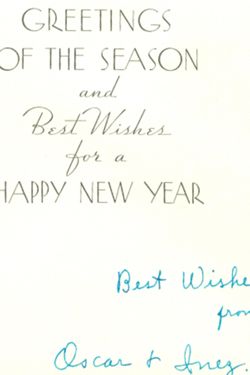 GREETINGS
OF THE SEASON
and
Best Wishes
for a
HAPPY NEW YEAR
Best Wishe
from
Oscar & Inez.